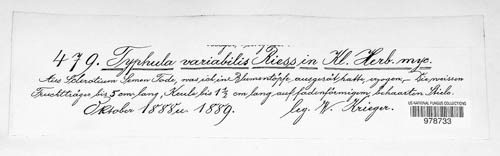 479. Typhula variabilis Riess in Kl. Herb. myc.
Aus Sclerotium Semen Tode, was ich in Blumentöpfe ausgesät hatte, erzogen. – Die weissen
Fruchtträger bis 5 cm lang, Keule bis 1½ cm lang auf fadenförmigem, behaarten Stiele.
Oktober 1888 u. 1889. leg. W. Krieger.
US NATIONAL FUNGUS COLLECTIONS
978733